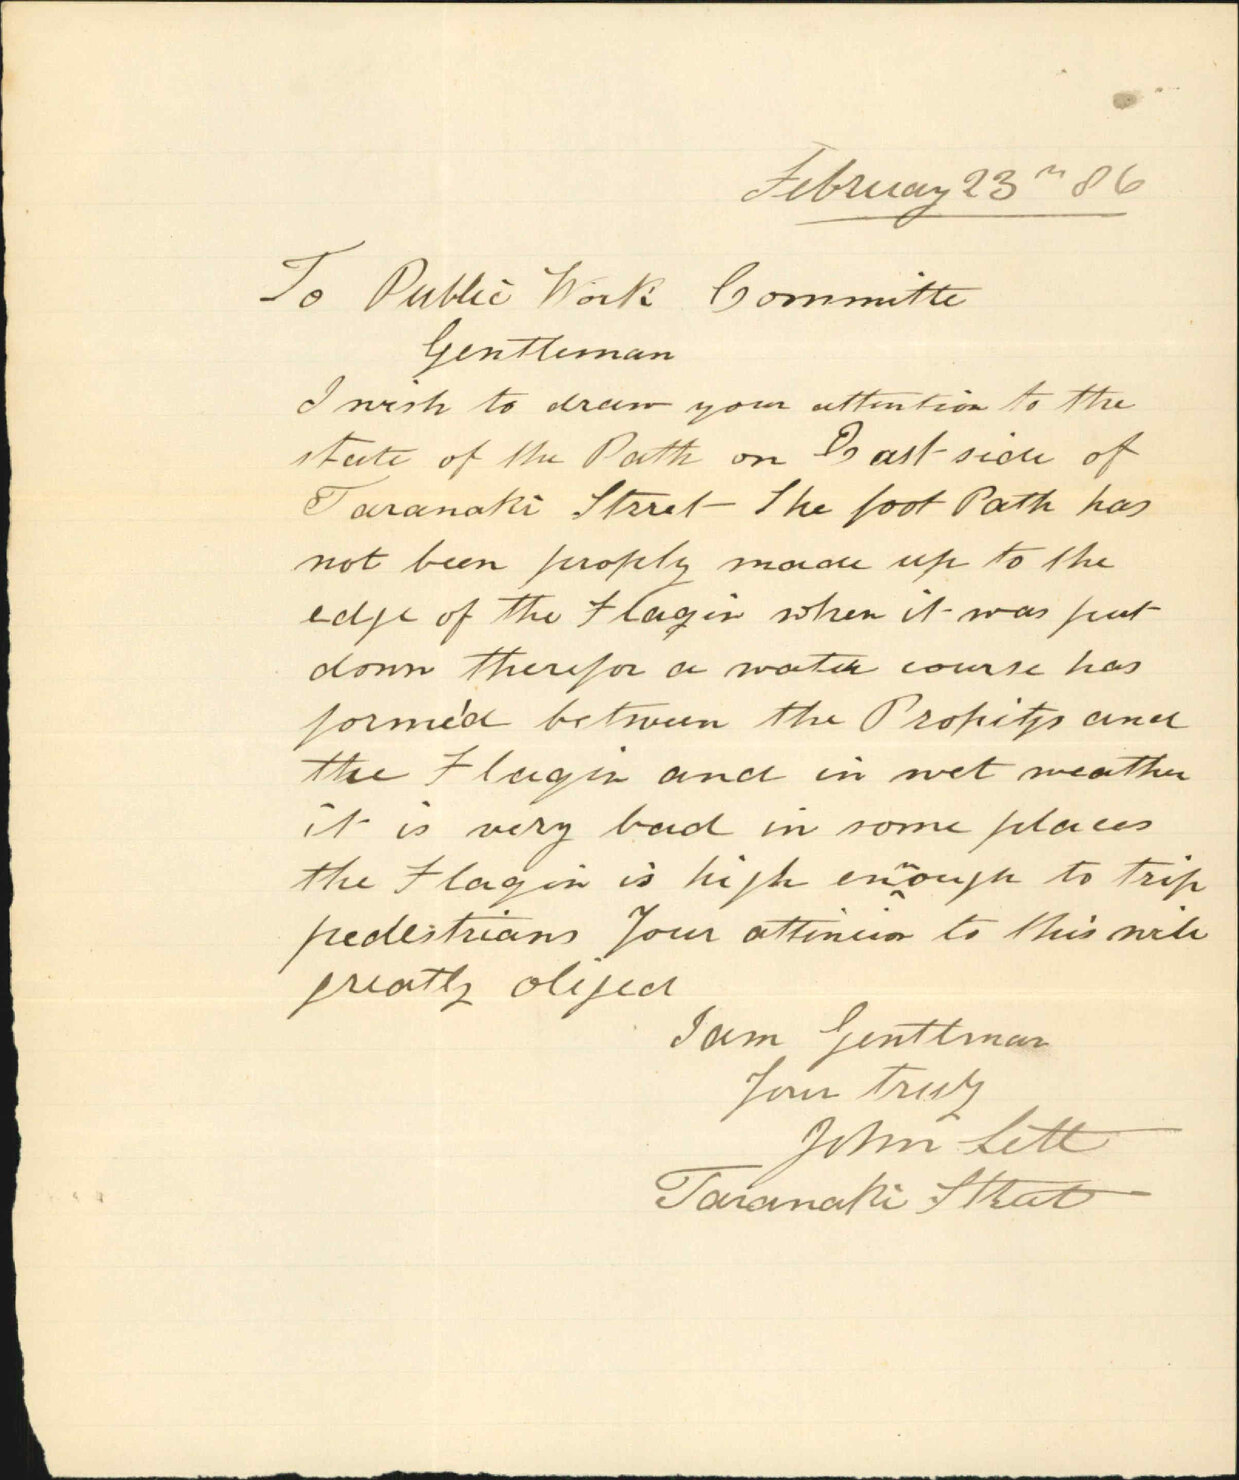 February 23rd 86
To Public Work Committe
Gentleman
I wish to draw your attention to the
state of the Path on East side of
Taranaki Street The foot Path has
not been proply made up to the
edge of the Flagin when it was put
down therefor a water course has
formed between the Propitys and
the Flagin and in wet weather
it is very bad in some places
the Flagin is high enough to trip
pedestrians Your attinion to this will
greatly oliged
I am Gentlman
Your truly
John Lett
Taranaki Street